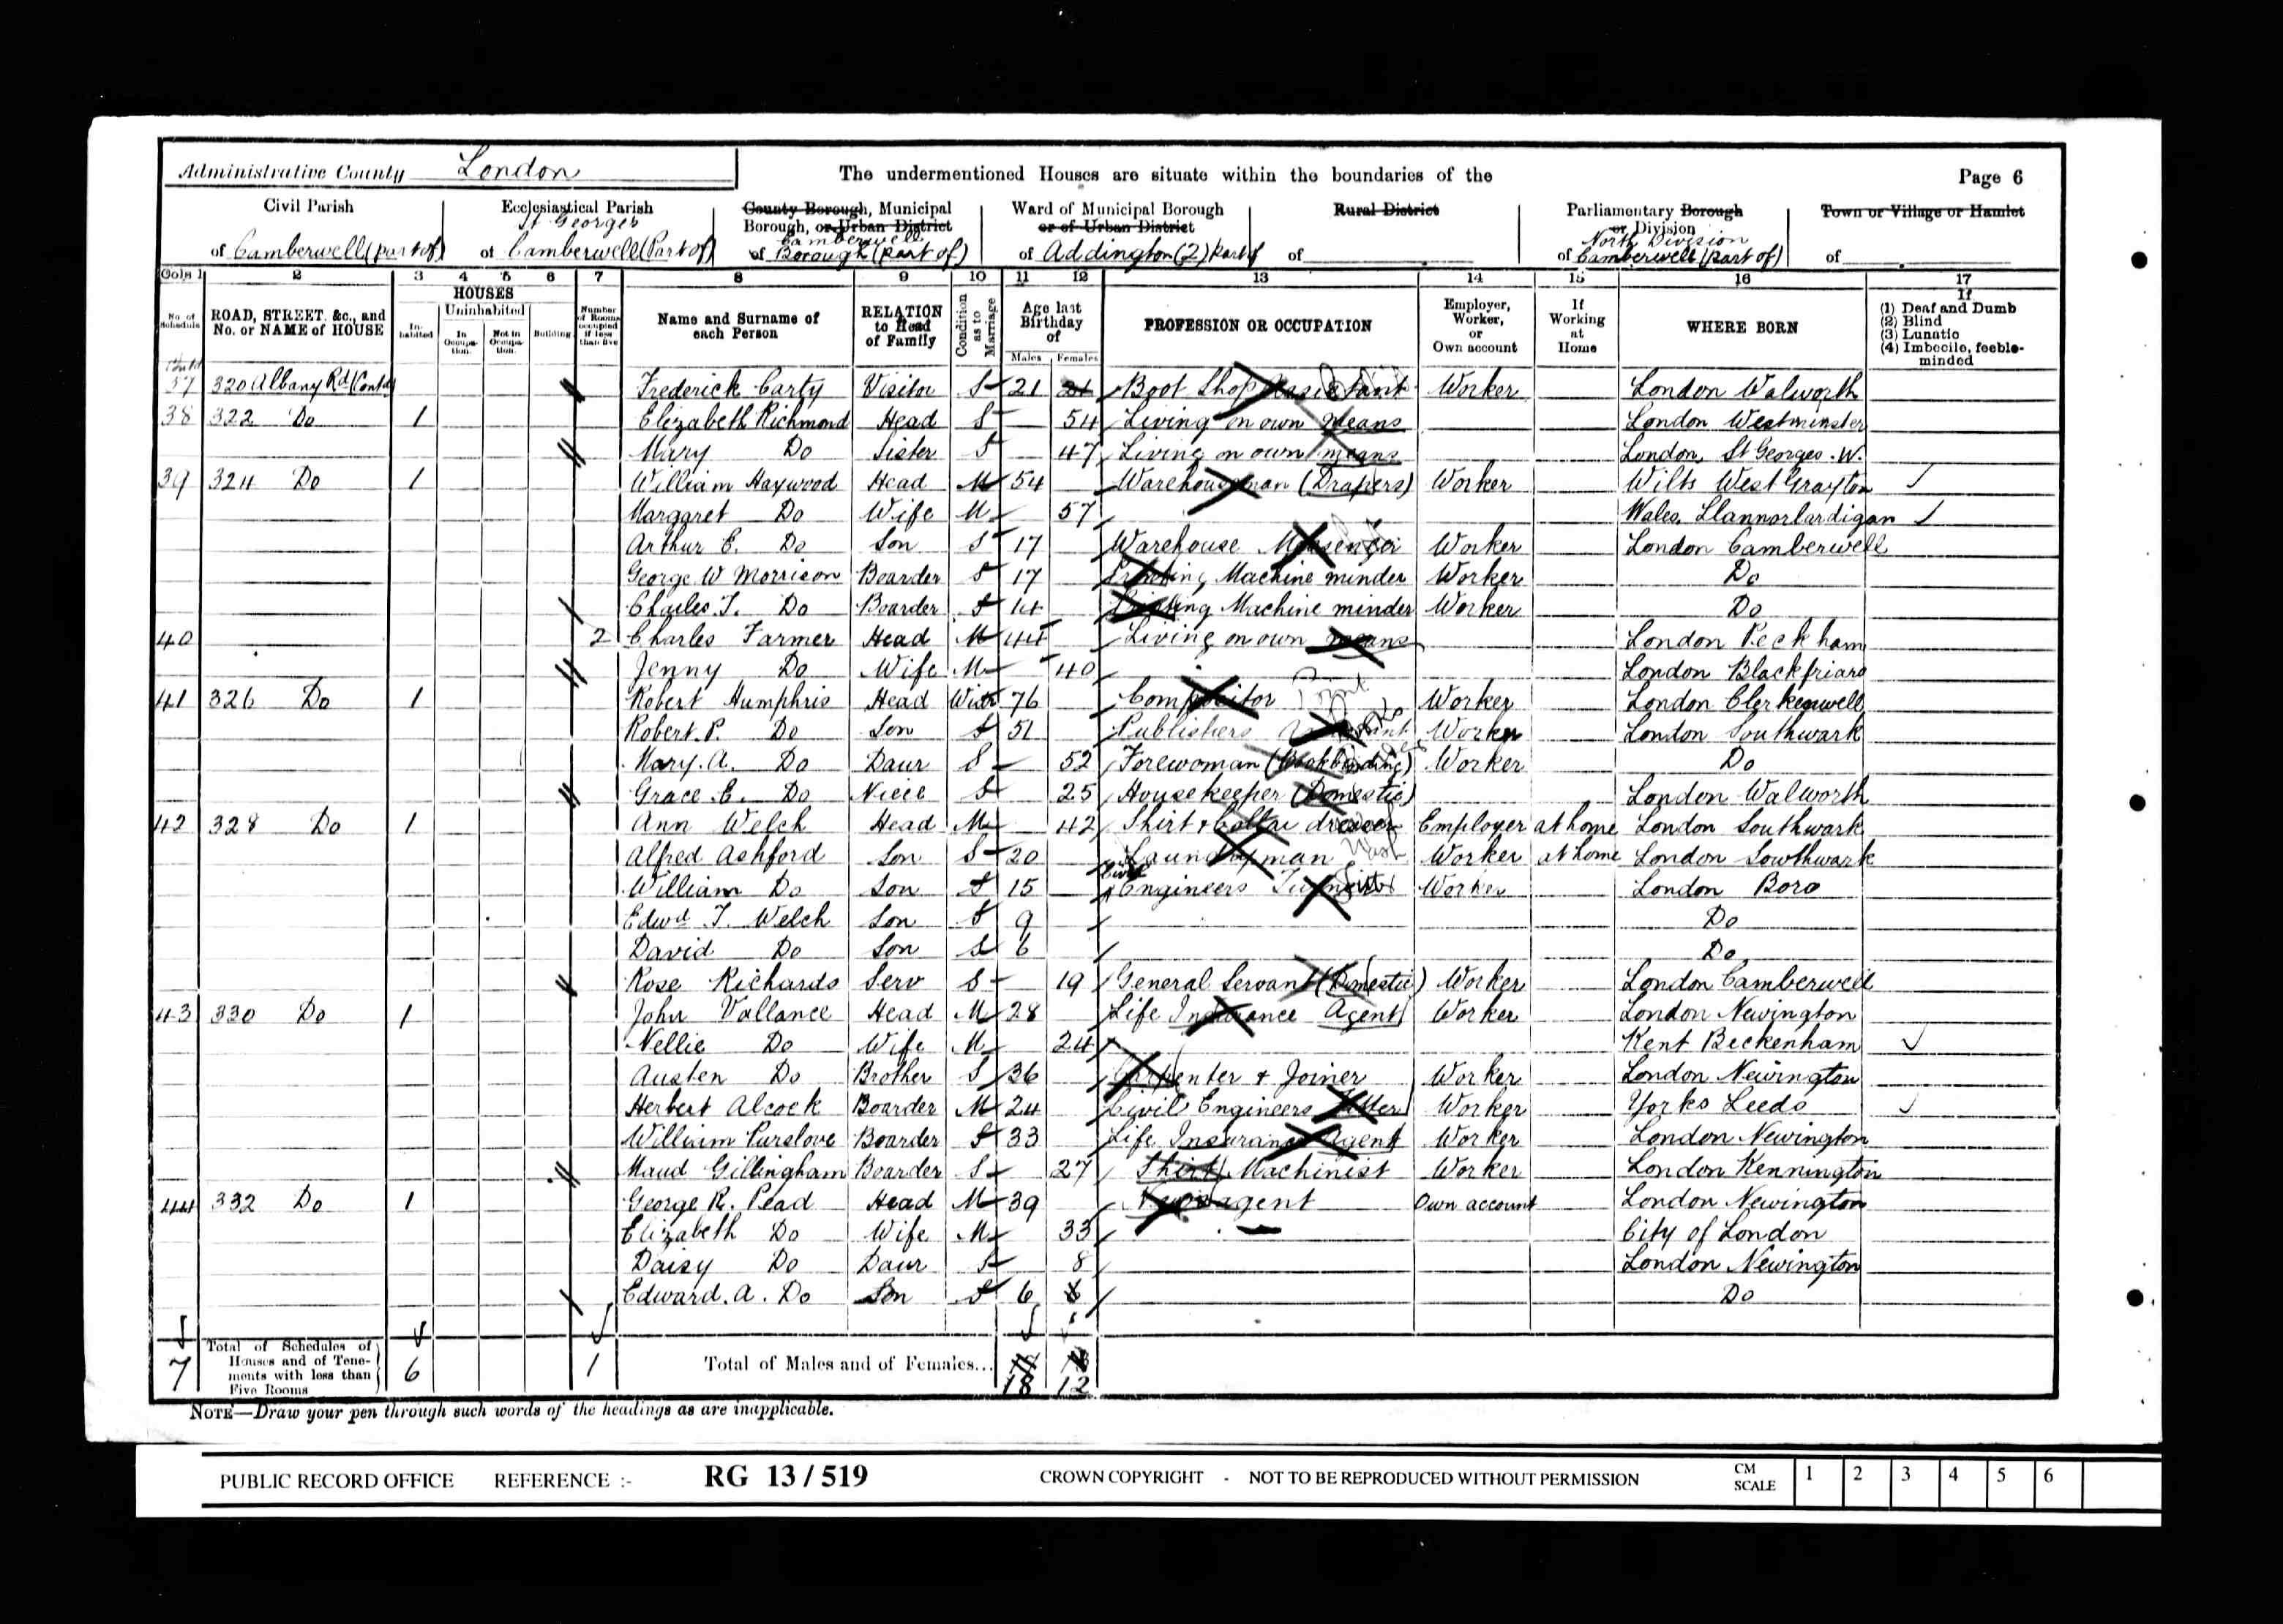 Administrative County London The undermentioned Houses are situate within the boundaries of the Page 6
Civil Parish Ecclesiastical Parish County Borough, Municipal Borough, or Urban District Ward of Municipal Borough or of Urban District Rural District Parliamentary Borough or Division Town or Village or Hamlet
of Camberwell (part of) of St Georges Camberwell (Part of) of Camberwell Borough (part of) of Addington (2) Part of of of North Division Camberwell (part of) of
Cols 1 2 3 4 5 6 7 8 9 10 11 12 13 14 15 16 17
No. of Schedule ROAD, STREET, &c., and No. or NAME of HOUSE HOUSES In-habited Uninhabited In Occupa-tion. Not in Occupa-tion. Building Number of Rooms occupied if less than five Name and Surname of each Person RELATION to Head of Family Condition as to Marriage Age last Birthday of Males Females PROFESSION OR OCCUPATION Employer, Worker, or Own account If Working at Home WHERE BORN If (1) Deaf and Dumb (2) Blind (3) Lunatic (4) Imbecile, feeble-minded
37 320 Albany Rd (Contd) Frederick Carty Visitor S 21 21 Boot Shop Assistant Worker London Walworth
38 322 Do 1 Elizabeth Richmond Head S 54 Living on own means London Westminster
Mary Do Sister S 47 Living on own means London, St Georges. W.
39 324 Do 1 William Haywood Head M 54 Warehouseman (Drapers) Worker Wilts West Grayton
Margaret Do Wife M 57 Wales,
Arthur E. Do Son S 17 Warehouse Messenger Worker London Camberwell
George W Morrison Boarder S 17 Printing Machine minder Worker Do
Charles T. Do Boarder S 14 Printing Machine minder Worker Do
40 2 Charles Farmer Head M 44 Living on own means London Peckham
Jenny Do Wife M 40 London Blackfriars
41 326 Do 1 Robert Humphris Head Widr 76 Compositor Print Worker London Clerkenwell
Robert. P. Do Son S 51 Publishers Assistant Worker London Southwark
Mary. A. Do Daur S 52 Forewoman (Bookbinding) Worker Do
Grace. E. Do Niece S 25 Housekeeper (Domestic) London Walworth
42 328 Do 1 Ann Welch Head M 42 Shirt & Collar dresser Employer at home London Southwark
Alfred Ashford Son S 20 Laundryman Wash Worker at home London Southwark
William Do Son S 15 Civil Engineers Turner Fitter Worker London Boro
Edwd T. Welch Son S 9 Do
David Do Son S 6 Do
Rose Richards Serv S 19 General Servant (Domestic) Worker London Camberwell
43 330 Do 1 John Vallance Head M 28 Life Insurance Agent Worker London Newington
Nellie Do Wife M 24 Kent Beckenham
Austen Do Brother S 36 Carpenter & Joiner Worker London Newington
Herbert Alcock Boarder M 24 Civil Engineers Fitter Worker Yorks Leeds
William Purslove Boarder S 33 Life Insurance Agent Worker London Newington
Maud Gillingham Boarder S 27 Shirt Machinist Worker London Kennington
44 332 Do 1 George R. Pead Head M 39 Newsagent Own account London Newington
Elizabeth Do Wife M 33 City of London
Daisy Do Daur S 8 London Newington
Edward. A. Do Son S 6 6 Do
7 Total of Schedules of Houses and of Tene-ments with less than Five Rooms 6 1 Total of Males and of Females... 18 12
NOTE—Draw your pen through such words of the headings as are inapplicable.
PUBLIC RECORD OFFICE REFERENCE :- RG 13 / 519 CROWN COPYRIGHT - NOT TO BE REPRODUCED WITHOUT PERMISSION CM SCALE 1 2 3 4 5 6